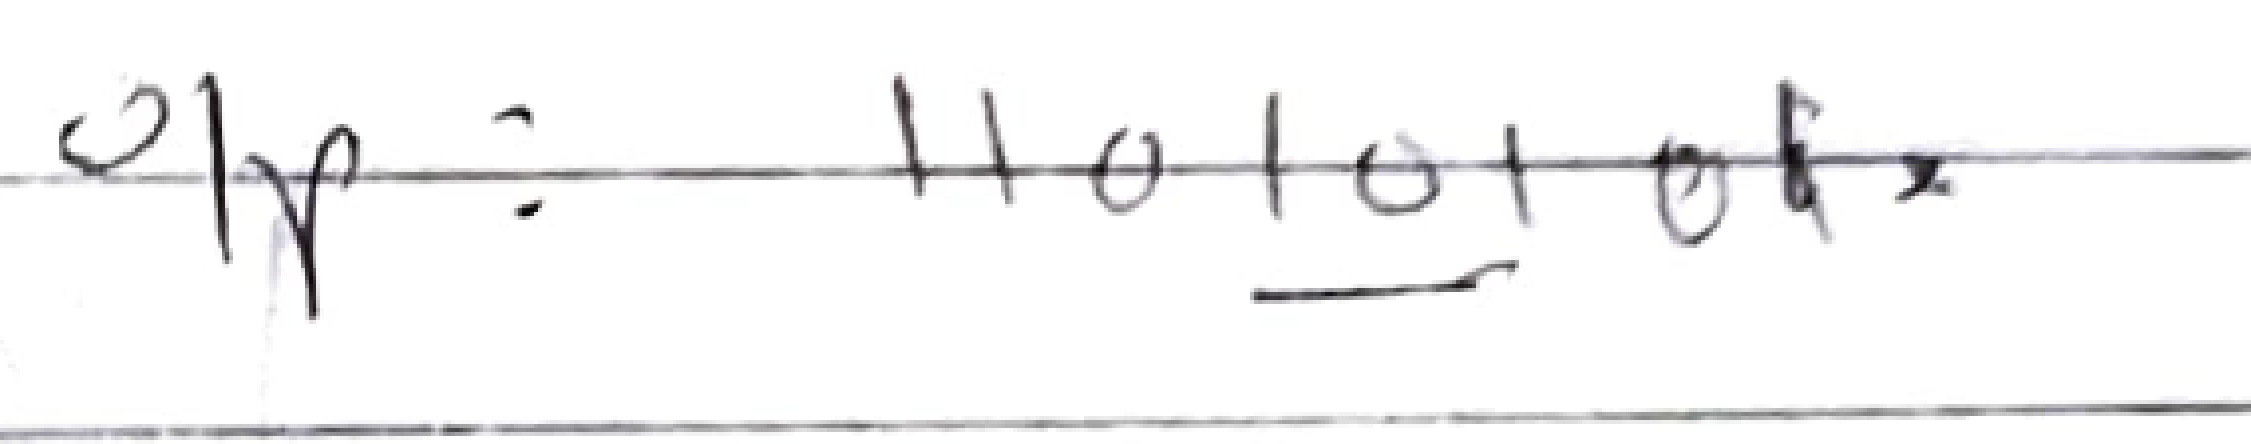 O/p : 1 1 0 1 0 1 0